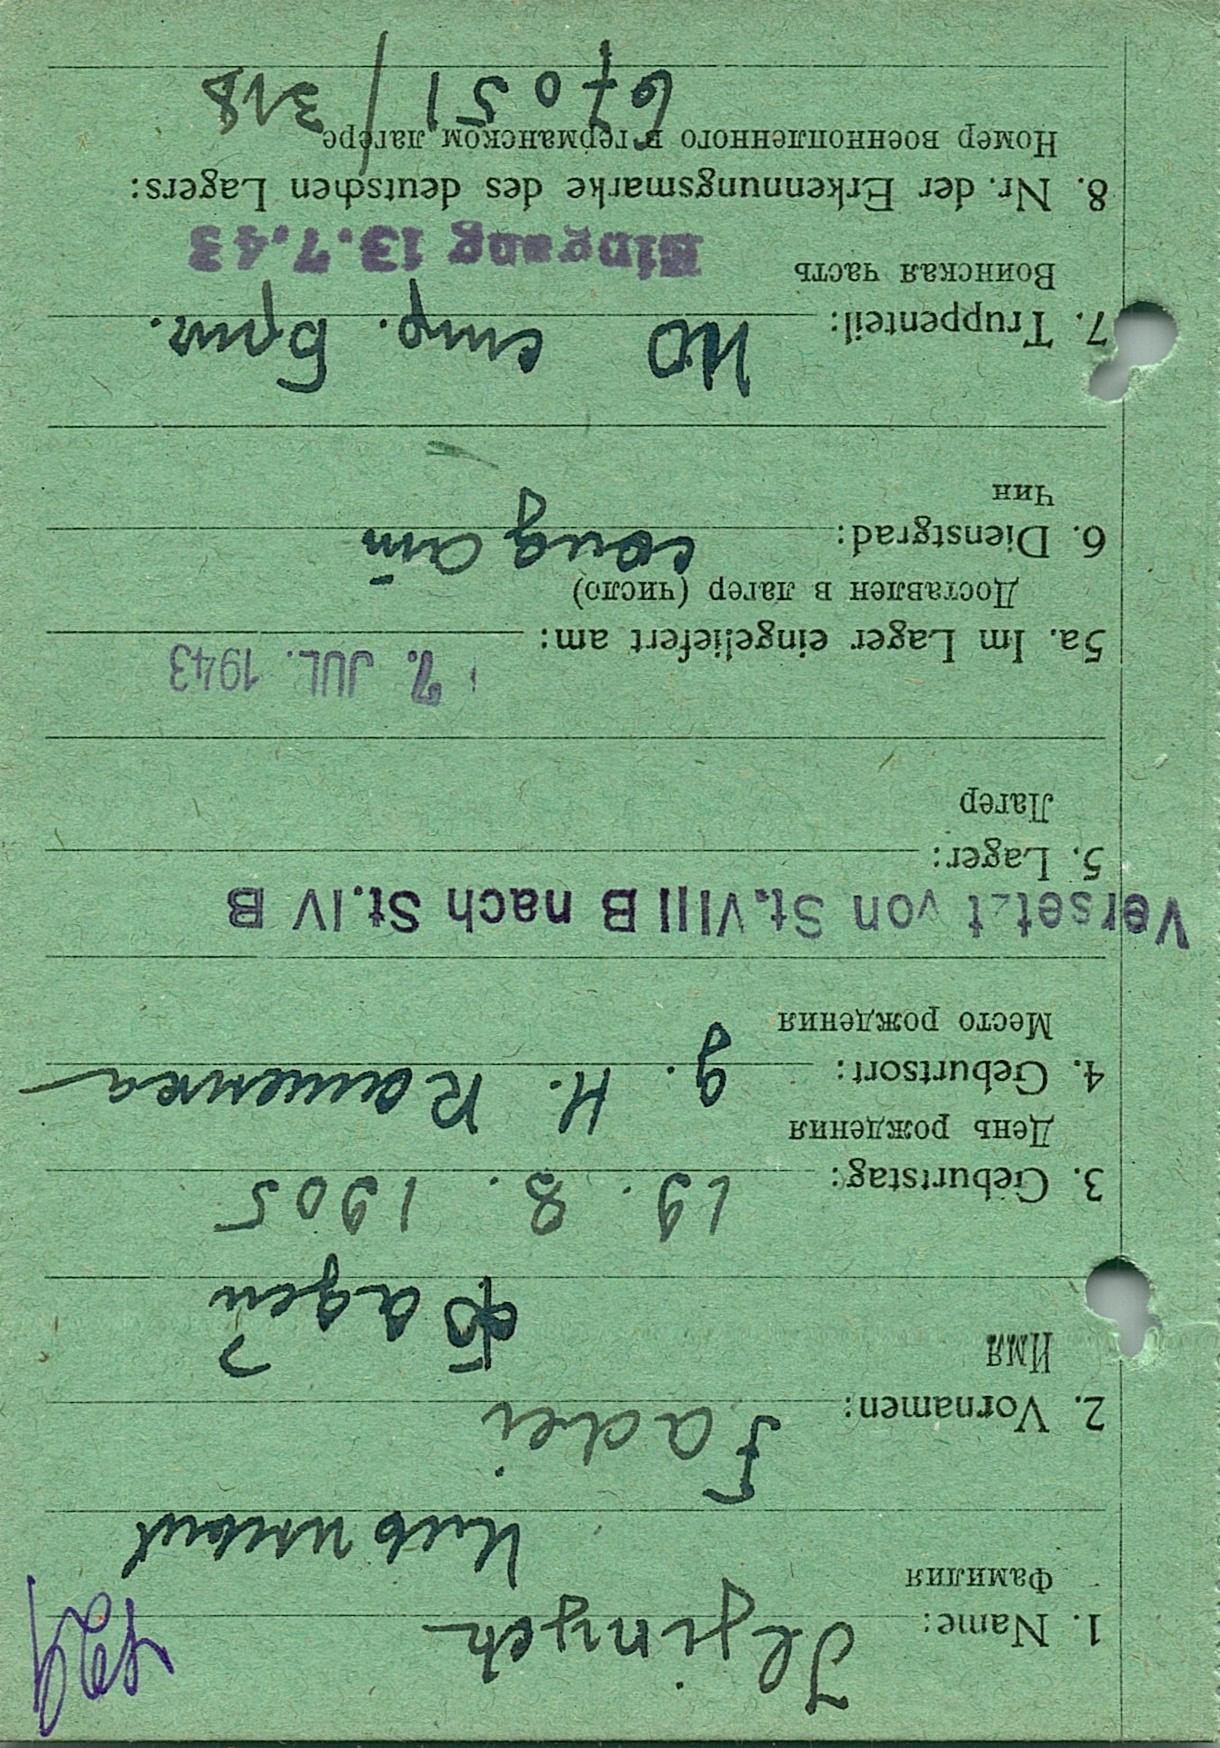 1. Name: Iljinych
Фамилия
Ильиных
2. Vornamen: Fadei
Имя
Фадей
3. Geburtstag: 19. 8. 1905
День рождения
4. Geburtsort: д. Н. Каменка
Место рождения
Versetzt von St. VIII B nach St. IV B
5. Lager:
Лагер
7. JUL. 1943
5a. Im Lager eingeliefert am:
Доставлен в лагер (число)
6. Dienstgrad: солдат
Чин
7. Truppenteil: стр. Бриг.
Воинская часть
Eingang 13.7.43
8. Nr. der Erkennungsmarke des deutschen Lagers:
Номер военнопленного в германском лагере
67051 / 318